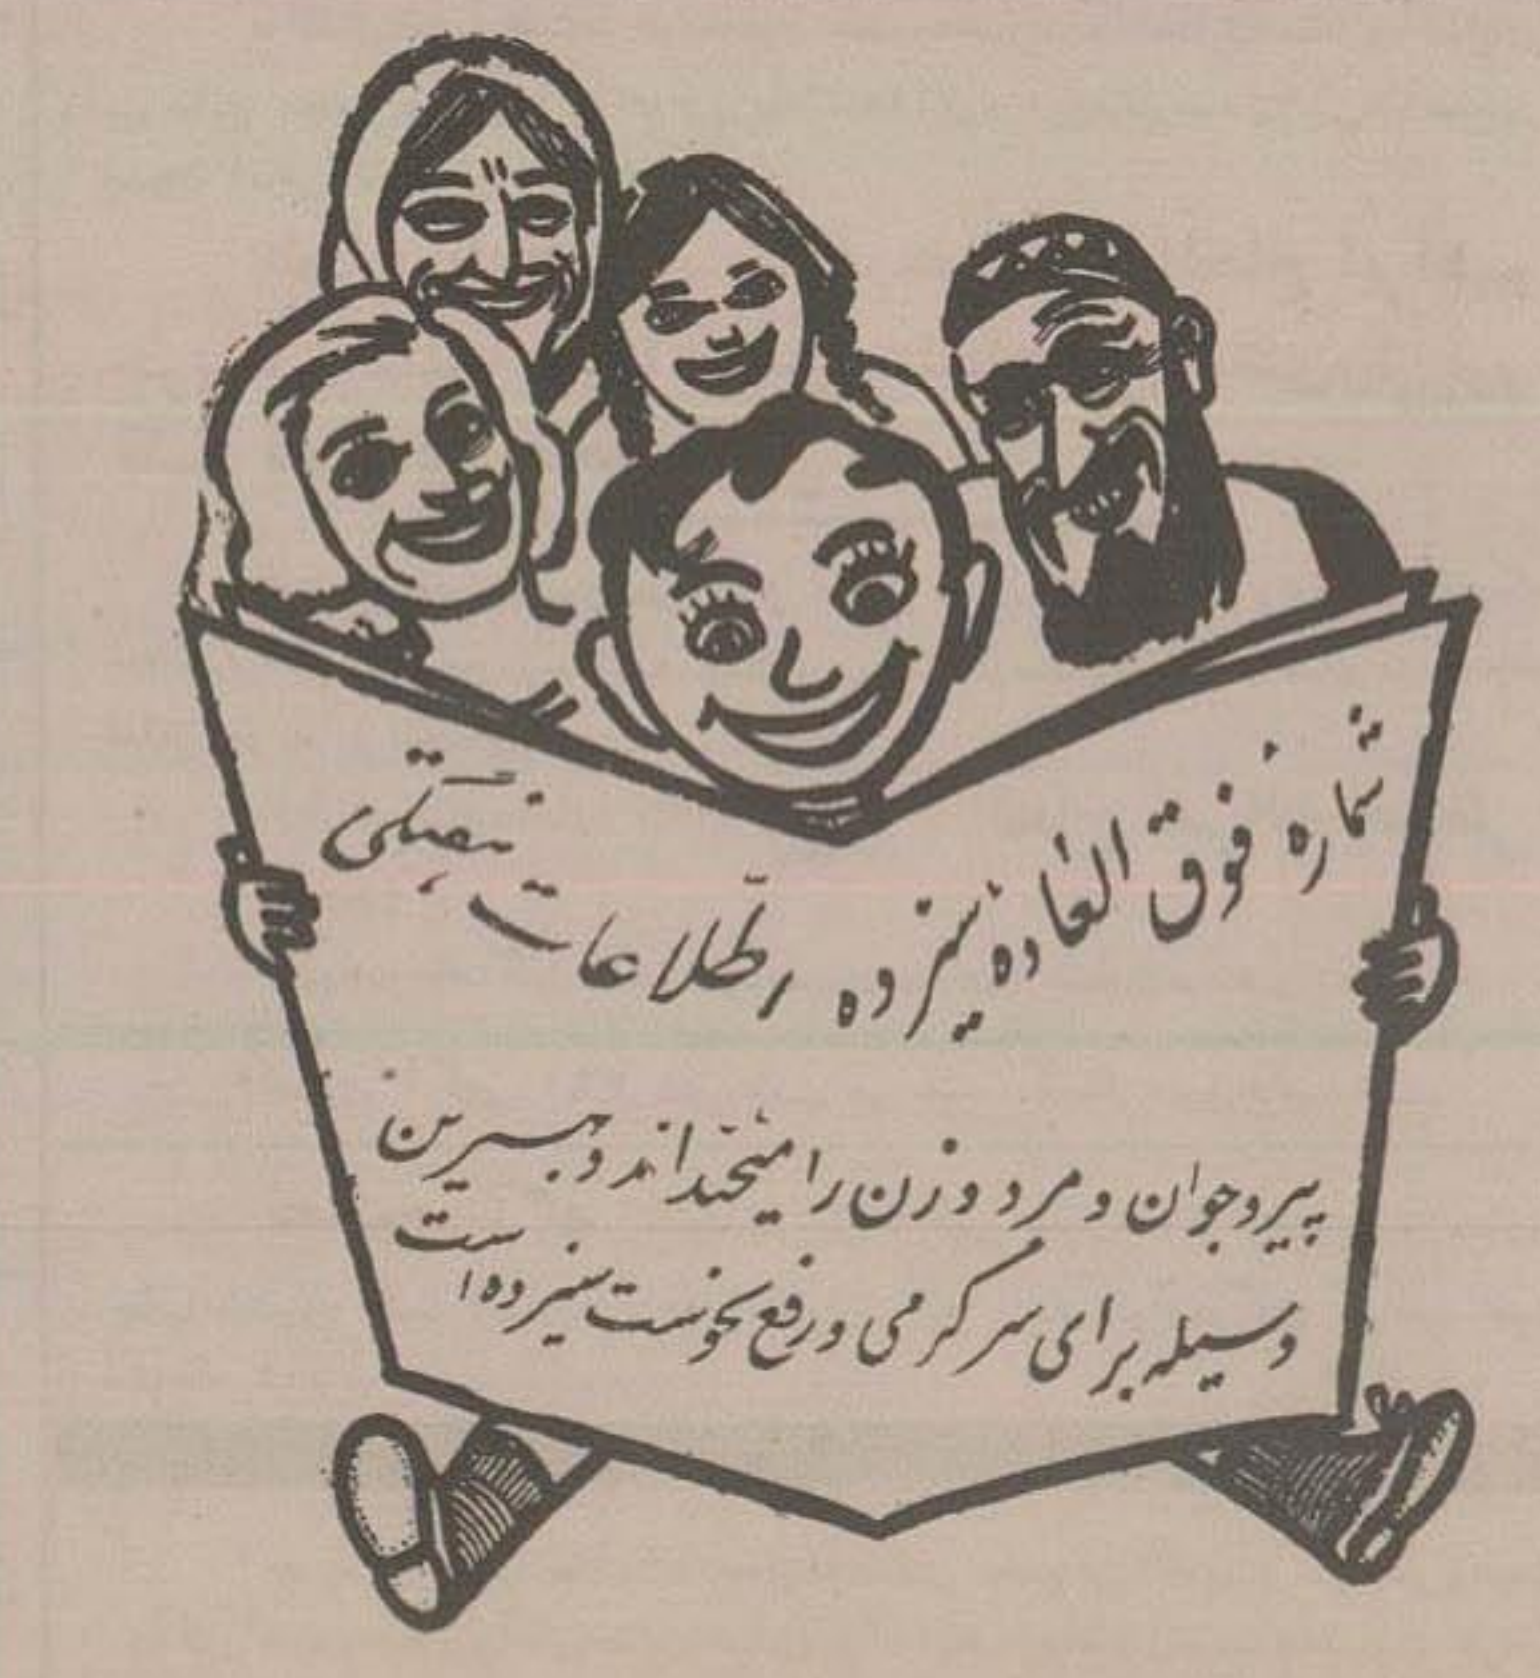 شمارهٔ فوق العادهٔ سیزده اطلاعات هفتگی
پیر و جوان و مرد و زن را میخنداند و بهترین
وسیله برای سرگرمی و رفع نحوست سیزده است